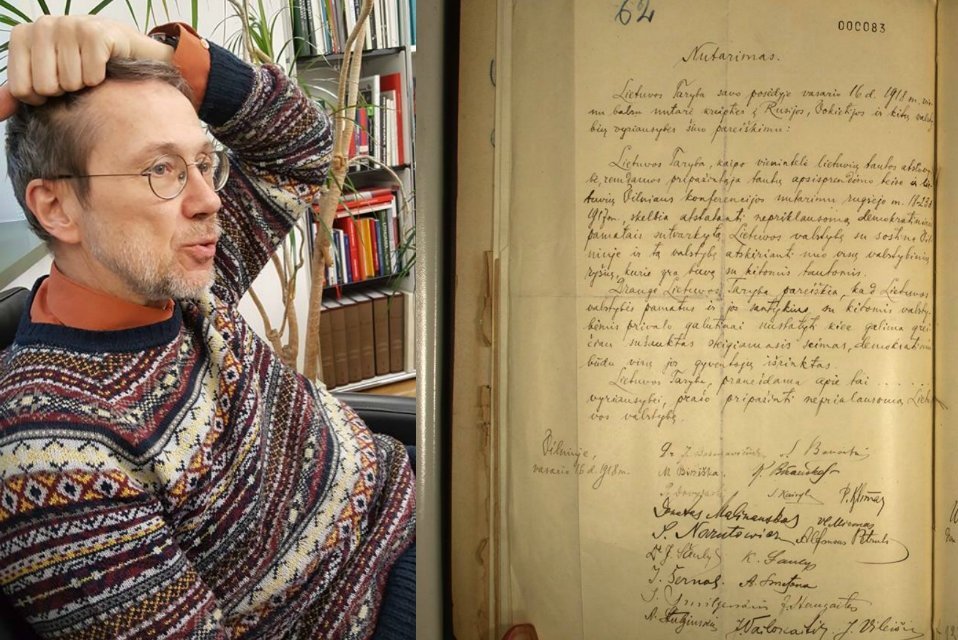 62
000083
Nutarimas.
Lietuvos Taryba savo posėdyje vasario 16 d. 1918 m. vie-
nu balsu nutarė kreiptis į Rusijos, Vokietijos ir kitų valsty-
bių vyriausybes šiuo pareiškimu:
Lietuvos Taryba, kaipo vienintelė lietuvių tautos atstovy-
bė, remdamos pripažintąja tautų apsisprendimo teise ir lie-
tuvių Vilniaus konferencijos nutarimu rugsėjo m. 18-23 d.
1917 m., skelbia atstatanti nepriklausomą demokratiniais
pamatais sutvarkytą Lietuvos valstybę su sostine Vil-
niuje ir tą valstybę atskirianti nuo visų valstybinių
ryšių, kurie yra buvę su kitomis tautomis.
Drauge Lietuvos Taryba pareiškia, kad Lietuvos
valstybės pamatus ir jos santykius su kitomis valsty-
bėmis privalo galutinai nustatyti kiek galima grei-
čiau sušauktas steigiamasis seimas, demokratiniu
būdu visų jo gyventojų išrinktas.
Lietuvos Taryba, pranešdama apie tai . . . . . .
vyriausybei, prašo pripažinti nepriklausomą Lietu-
vos valstybę.
Vilniuje,
vasario 16 d. 1918 m.
S. Banaitis
M. Biržiška K. Bizauskas
P. Dovydaitis S. Kairys P. Klimas
Donatas Malinauskas Vl. Mironas
S. Narutowicz Alfonsas Petrulis
Dr J. Šaulys K. Šaulys
J. Šernas A. Smetona
J. Smilgevičius J. Staugaitis
A. Stulginskis J. Vileišis